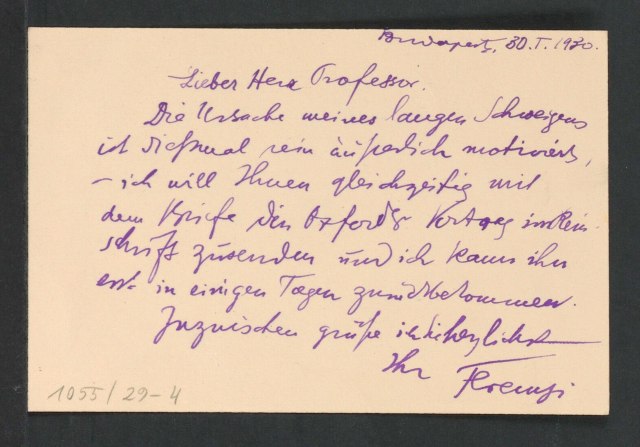 Budapest, 30. I. 1930.
Lieber Herr Professor.
Die Ursache meines langen Schweigens
ist diesmal rein äußerlich motiviert,
– ich will Ihnen gleichzeitig mit
dem Briefe den Oxforder Vortrag in Rein-
schrift zusenden und ich kann ihn
erst in einigen Tagen zurückbekommen.
Inzwischen grüße ich Sie herzlichst
Ihr Ferenczi
1055/29-4